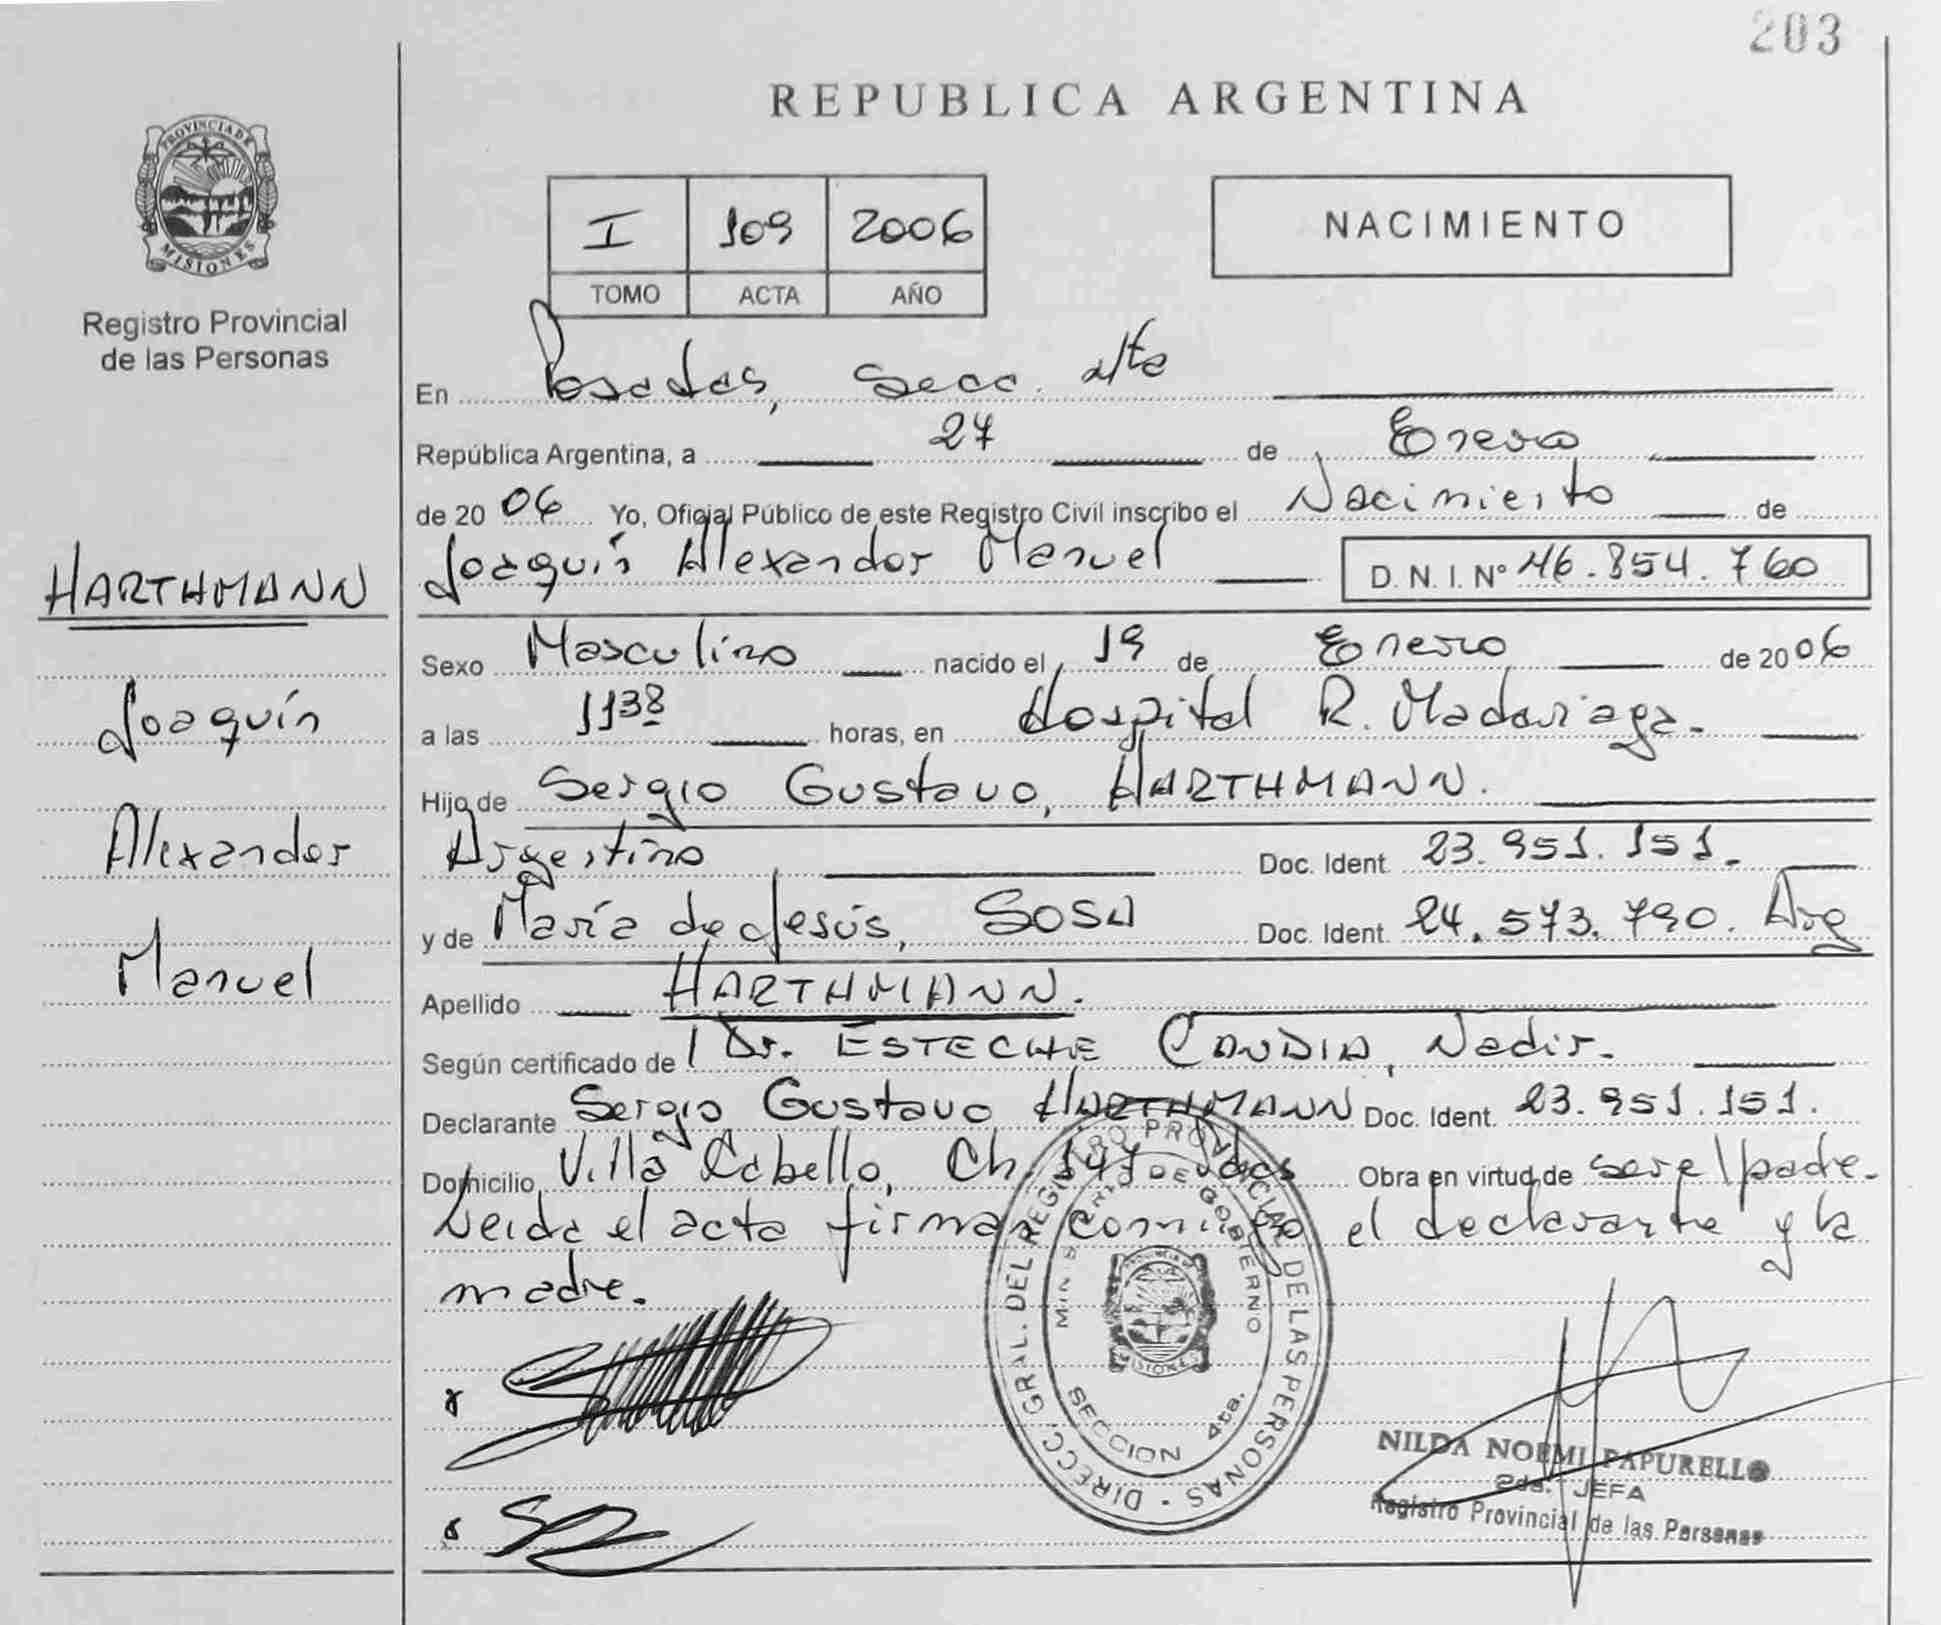 203
REPUBLICA ARGENTINA
PROVINCIA DE
MISIONES
Registro Provincial
de las Personas
I 109 2006
TOMO ACTA AÑO
NACIMIENTO
En Posadas, Secc. 4ta
República Argentina, a 27 de Enero
de 2006 Yo, Oficial Público de este Registro Civil inscribo el Nacimiento de
Joaquín Alexander Manuel D. N. I. Nº 46.854.760
HARTHMANN
Joaquín
Alexander
Manuel
Sexo Masculino nacido el 19 de Enero de 2006
a las 1138 horas, en Hospital R. Madariaga.
Hijo de Sergio Gustavo, HARTHMANN.
Argentino Doc. Ident. 23.951.151.
y de María de Jesús, SOSA Doc. Ident. 24.573.790. Arg
Apellido HARTHMANN.
Según certificado de Dr. ESTECHE CANDIA, Nadir.
Declarante Sergio Gustavo HARTHMANN Doc. Ident. 23.951.151.
Domicilio Villa Cabello, Ch. 147 Pdas Obra en virtud de ser el padre.
Leida el acta firman conmigo el declarante y la
madre.
DIRECC. GRAL. DEL REGISTRO PROVINCIAL DE LAS PERSONAS
MINISTERIO DE GOBIERNO
PROVINCIA DE
MISIONES
SECCION 4ta.
NILDA NOEMI PAPURELLO
2da. JEFA
Registro Provincial de las Personas